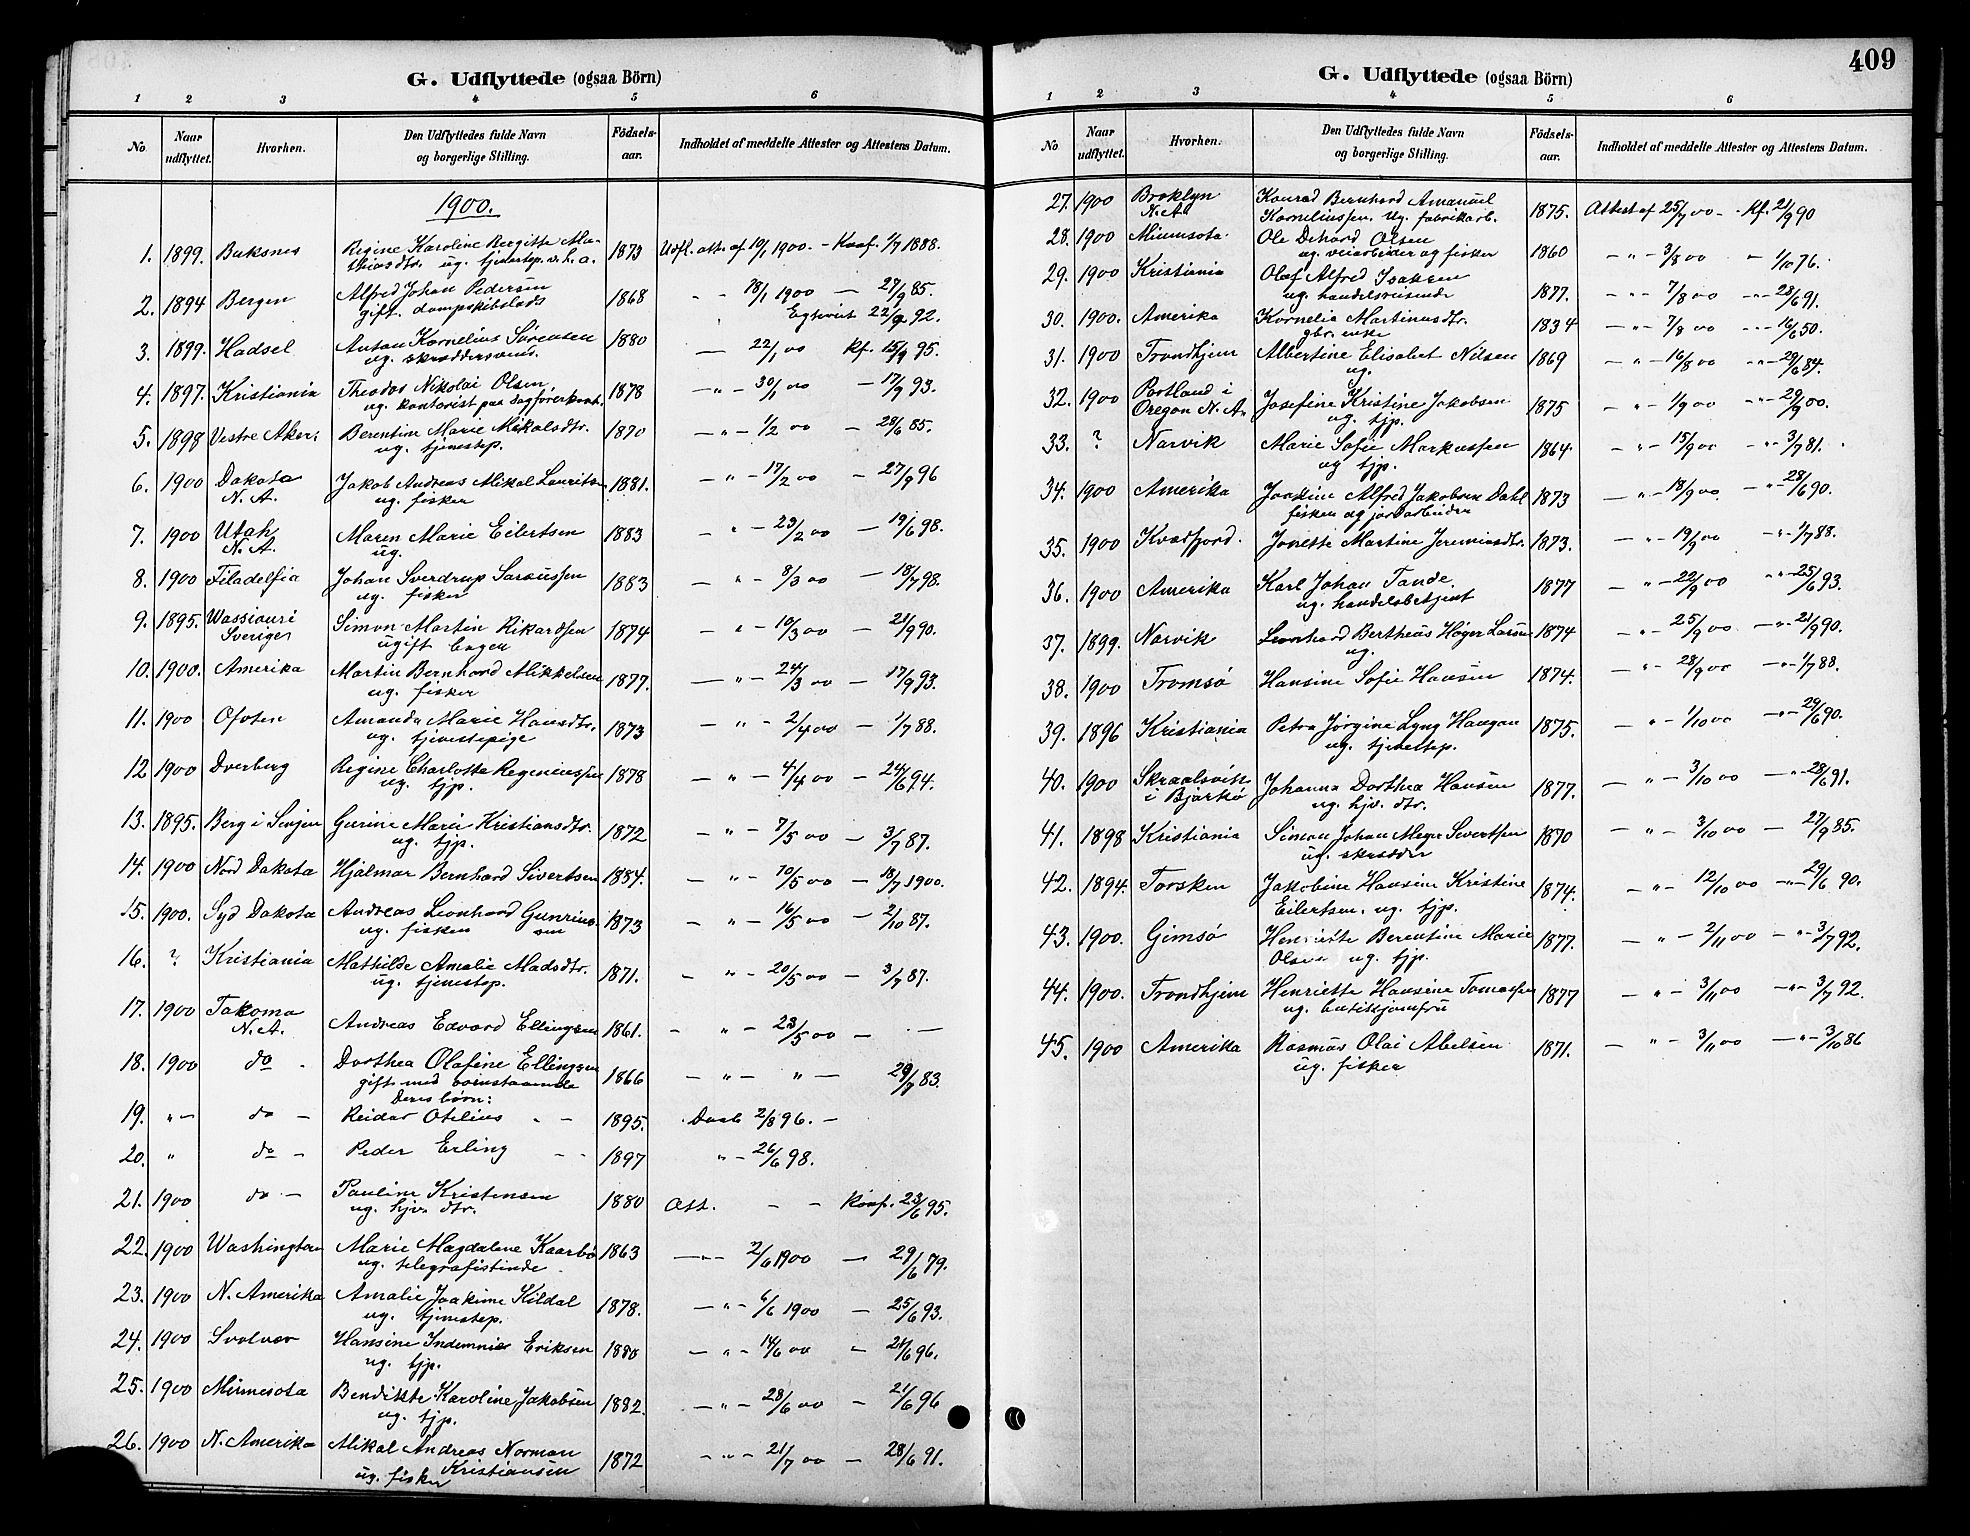 G. Udflyttede (ogsaa Börn)
1 2 3 4 5 6
No. Naar udflyttet. Hvorhen. Den Udflyttedes fulde Navn og borgerlige Stilling. Födsels-aar. Indholdet af meddelte Attester og Attestens Datum.
1900.
1. 1899. Buksnes Regine Karoline Bergitte Ma- 1873 Udfl. att. af 19/1 1900. – Konf. 1/7 1888.
thiasdtr. ug. tjenestep. v. h. a.
2. 1894 Bergen Alfred Johan Pedersen 1868 " 18/1 1900 – 27/9 85.
gift. dampskibslods Egteviet 22/9 92.
3. 1899. Hadsel Anton Kornelius Sørensen 1880 — 22/1 00 Kf. 15/9 95.
ug. skræddersvend.
4. 1897. Kristiania Theodor Nikolai Olsen, 1878 — " — 30/1 00 — 17/9 93.
ug. kontorist paa Sagførerkont.
5. 1898 Vestre Aker. Berentine Marie Mikalsdtr. 1870 — " — 1/2 00 — 28/6 85.
ug. tjenestep.
6. 1900 Dakota Jakob Andreas Mikal Lauritsen 1881. — " — 17/2 00 — 27/9 96
N. A. ug. fisker
7. 1900 Utah Maren Marie Eilertsen 1883 " — 23/2 00 — 19/6 98.
N. A. ug.
8. 1900 Filadelfia Johan Sverdrup Sarsussen 1883 — " — 8/3 00 — 18/7 98.
ug. fisker
9. 1895. Wassiauri Simon Martin Rikardsen 1874 — " — 10/3 00 — 21/9 90.
Sverige ugift
10. 1900. Amerika Martin Bernhard Mikkelsen 1877. — " — 24/3 00 — 17/9 93.
ug. fisker
11. 1900 Ofoten Amanda Marie Hansdtr. 1873 — " — 2/4 00 — 1/7 88.
ug. tjenestepige
12 1900 Dverberg Regine Charlotte Regeniussen 1878 — " — 4/4 00 — 24/6 94.
ug. tjp.
13. 1895. Berg i Senjen Gurine Marie Kristiansdtr. 1872 — " — 7/5 00 — 3/7 87.
ug. tjp.
14. 1900 Nord Dakota Hjalmar Bernhard Sivertsen 1884. — " — 10/5 00 — 18/7 1900.
15. 1900. Syd Dakota Andreas Leonhard Gunrius- 1873 — " — 16/5 00 — 2/10 87.
ug. fisker sen
16. ? Kristiania Mathilde Amalie Madsdtr. 1871. — " — 20/5 00 — 3/7 87.
ug. tjenestep.
17. 1900 Takoma
N. A. Andreas Edvard Ellingsen 1861. — " — 23/5 00 — —
18. 1900 do Dorthea Olafine Ellingsen 1866 — " — " — 29/7 83.
gift med ovenstaaende
Deres børn:
19. " — do — Reidar Otelius — — 1895. Daab 2/8 96. —
20. " do — Peder Erling — — 1897 " — 26/6 98.
21. 1900 do — Pauline Kristensen 1880 Att. — — Konf. 23/6 95.
ug. hjv. dtr.
22. 1900 Washington Marie Magdalene Kaarbø 1863 — " — 2/6 1900 — 29/6 79.
ug. telegrafistinde
23. 1900 N. Amerika Amalie Joakime Kildal 1878. — " — 6/6 1900 — 25/6 93.
ug. tjenestep.
24. 1900 Svolvær Hansine Indemnier Eriksen 1880 — " — 14/6 00 — 21/6 96.
ug. tjp.
25. 1900 Minnesota Bendikte Karoline Jakobsen 1882. — " — 28/6 00 — 21/6 96
ug. tjp.
26. 1900 N. Amerika Mikal Andreas Norman 1872 — " — 21/7 00 — 28/6 91.
ug. fisker Kristiansen
G. Udflyttede (ogsaa Börn) 409
1 2 3 4 5 6
No Naar udflyttet. Hvorhen. Den Udflyttedes fulde Navn og borgerlige Stilling. Födsels-aar. Indholdet af meddelte Attester og Attestens Datum.
27. 1900 Broklyn Konrad Bernhard Amanuel 1875. Attest af 25/7 00 — Kf. 21/9 90
N. A. Korneliussen. ug. fabrikarb.
28. 1900 Minnsota Ole Dehard Olsen 1860 — " — 3/8 00 — 1/10 76.
ug. veiarbeider og fisker
29. 1900 Kristiania Olaf Alfred Isaksen 1877. — " — 7/8 00 — " — 28/6 91.
ug. handelsreisende
30. 1900. Amerika Kornelia Martinusdtr. 1834 — " — 7/8 00 — " — 16/6 50.
gbr. enke
31. 1900 Trondhjem Albertine Elisabet Nilsen 1869 — " — 16/8 00 — " — 29/6 84.
ug.
32. 1900 Portland i
Oregon N. A. Josefine Kristine Jakobsen 1875 — " — 1/9 00 — " — 29/9 00.
ug. tjp.
33. ? Narvik Marie Sofie Markussen 1864 — " — 15/9 00 — " — 3/7 81.
ug tjp.
34. 1900 Amerika Joakim Alfred Jakobsen Dahl 1873 — " — 18/9 00 — " — 28/6 90.
fisker og jordarbeider
35. 1900 Kvædfjord. Jonette Martine Jeremiasdtr. 1873. — " — 19/9 00 — " — 1/7 88.
36. 1900 Amerika Karl Johan Tande. 1877 — " — 22/9 00 — " — 25/6 93.
ug. handelsbetjent
37. 1899. Narvik Leonhard Bertheus Høyer Larsen 1874 — " — 25/9 00 — " — 21/9 90.
ug.
38. 1900 Tromsø Hansine Sofie Hansen 1874. — " — 28/9 00 — " — 1/7 88.
39. 1896 Kristiania Petra Jörgine Lyng Haugan 1875. — " — 1/10 00 — " — 29/6 90.
ug. tjenestep.
40. 1900 Skraalsvik Johanna Dorthea Hansen 1877. — " — 3/10 00 — " — 28/6 91.
i Bjarkø ug. hjv. dtr.
41. 1898 Kristiania Simon Johan Meyer Sivertsen 1870 — " — 3/10 00 — 27/9 85.
ug. skrædder
42. 1894. Torsken Jakobine Hansine Kristine 1874. — " — 12/10 00 — " — 29/6 90.
Eilertsen. ug. tjp.
43. 1900. Gimsø Henriette Berentine Marie 1877. — " — 2/11 00 — " — 3/7 92.
Olsen ug. tjp.
44. 1900. Trondhjem Henriette Hansine Tomassen 1877 — " — 3/11 00 — " — 3/7 92.
ug. butikjomfru
45. 1900 Amerika Rasmus Olai Abelsen 1871. — " — 3/11 00 — " — 3/10 86
ug. fisker